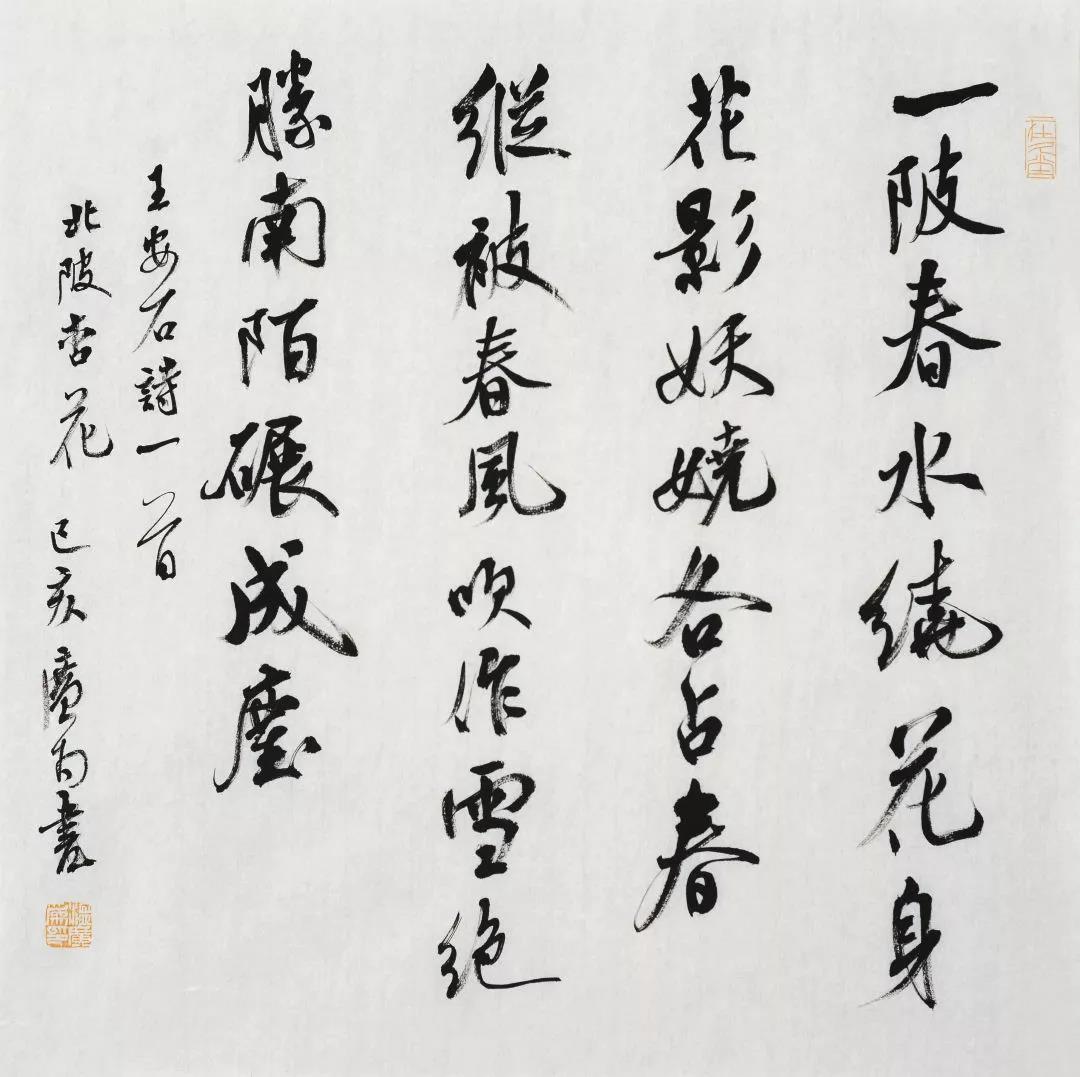 一陂春水繞花身
花影妖嬈各占春
縱被春風吹作雪絶
勝南陌碾成塵
王安石詩一首
北陂杏花 己亥 廣 書